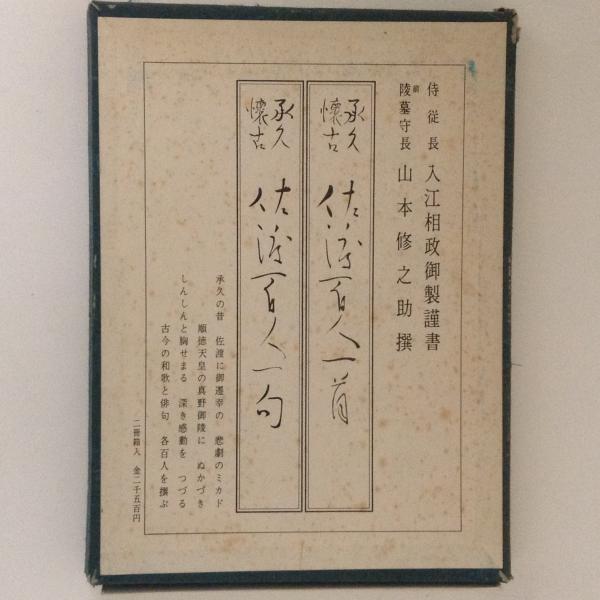 侍従長 入江相政御製謹書
前陵墓守長 山本修之助撰
承久懐古 佐渡百人一首
承久懐古 佐渡百人一句
承久の昔 佐渡に御遷幸の 悲劇のミカド
順徳天皇の真野御陵に ぬかづき
しんしんと胸せまる 深き感動を つづる
古今の和歌と俳句 各百人を撰ぶ
二冊箱入 金二千五百円